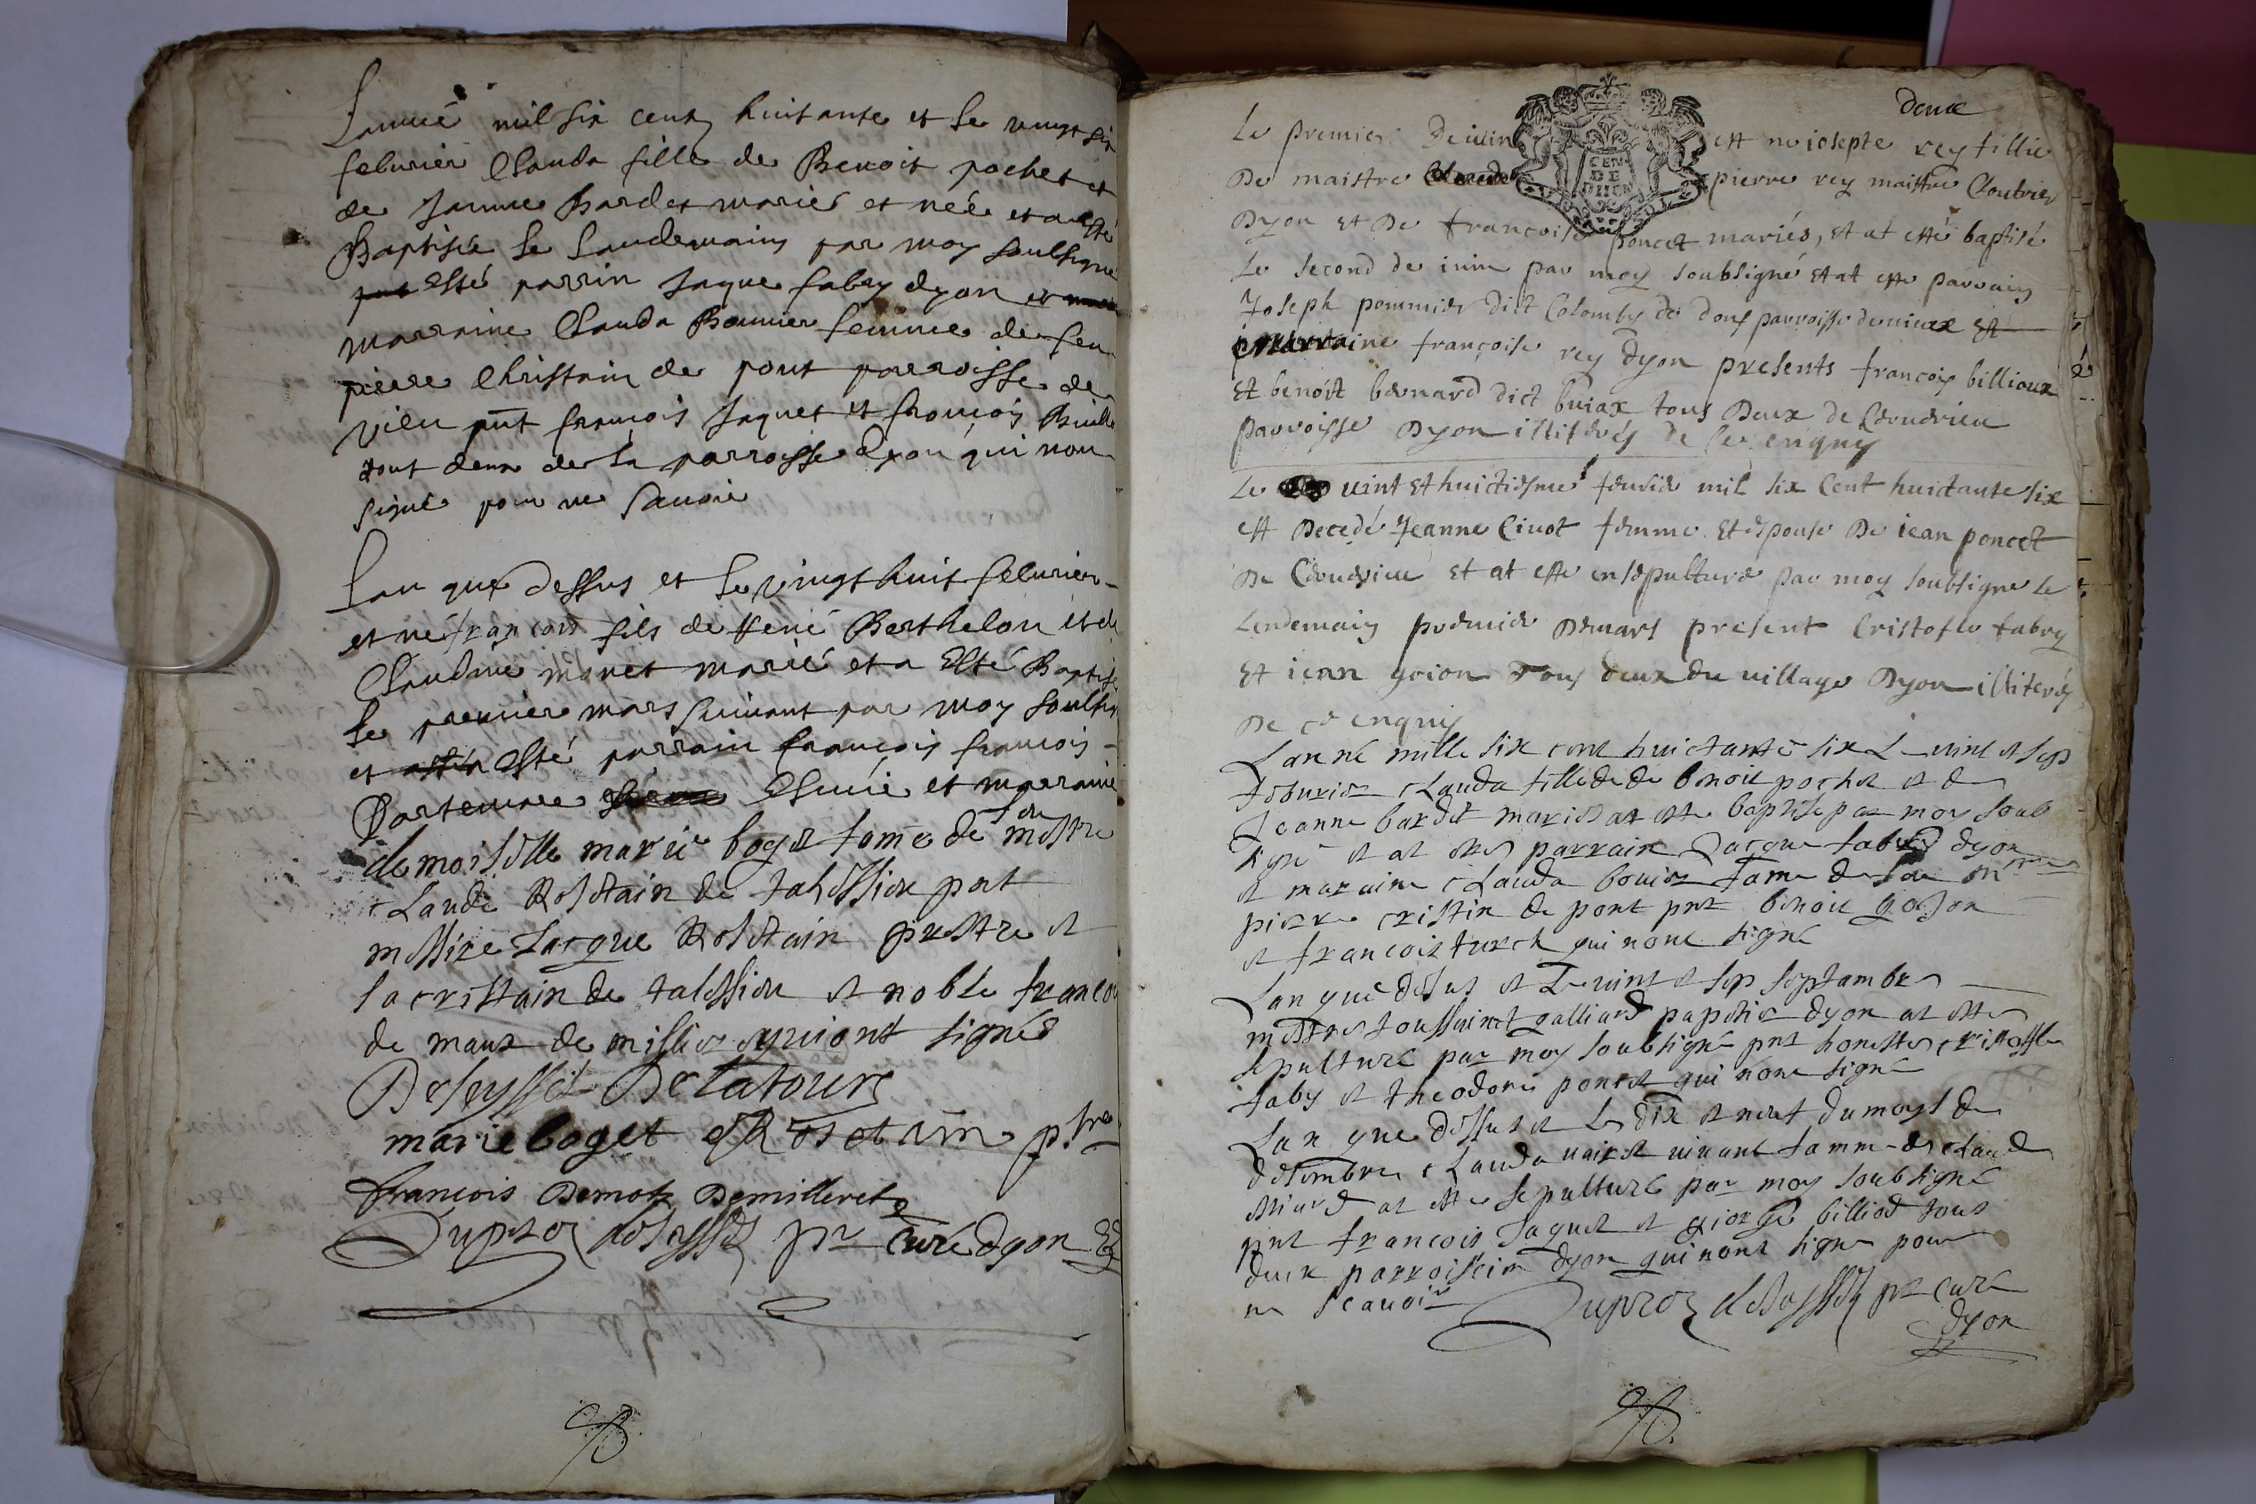 Lannée mil six centz huitante et le vingt six
feburier Clauda fille de Benoit pochet et
de Janne Bardet mariés et née et a esté
Baptisée le landemain par moy soubsigné
esté parrin Jaque fabry dyon et
marraine Clauda Bonnier femme de feu
pierre Christain de pont parroisse de
vieu pnt francois Jaquet et francois
tout deux de la parroisse dyon qui non
signé pour ne savoir
Lan que dessus et le vingt huit feburier
et né francois fils de René Berthelon et de
Claudine monet marié et a Esté Baptisé
le premier mars suivant par moy soulsig
et Esté parrain francois francois
Partenare et marraine
demoiselle marie boget fame de feu mestre
Claude Rosetain de talissieu pnt
messire Jacque Rosetain prestre et
sacristain de talissieu et noble francois
de maux de millier qui ont signés
Deseyssel Delatours
marie boget Rosetain ptre
francois Demotz Demilleret
Dupraz deseyssel ptr curé dyon
deux
Le premier De iuin est ne iosepte rey fillie
De maistre Claude pierre rey maistre Cloutrier
Dyon et De francoise poncet mariés, et at esté baptisé
Le second de iuin par moy soubsigné et at este parrain
Joseph pommier dict Colomby de dons parroisse de vieux et
marraine françoise rey dyon presents françois billioux
Et benoit bernard dict buiax tous Deux de Cerudrieu
parroisse Dyon illiterés de ce enquis
Le vint et huictiesme feuvrier mil six Cent huictante six
est Decedé Jeanne Ciuot femme et espouse De iean poncet
De Cerudrieu et at este ensepulturé par moy soubsigne le
Lendemain premier De mars present Cristofle fabry
Et iean grion Tous deux du village Dyon illiterés
De ce enquis
Lanné mille six cent huictante six Le vint et sep
feburier Clauda fille de de benoit pochet et de
Jeanne bardet maries at este baptise par moy soub
signé et at este parrain Jacque fabri dyon
et maraine Clauda bouier fame de feu
pierre cristin de pont pnt benoit gojon
et francois turch qui nont signé
Lan que desus et Le vint et sep septambre
mestre toussainct galliard papetier dyon at este
sepulturé par moy soubsigné pnt honeste cristofle
faby et theodore poncet qui nont signé
Lan que dessus et Le dix et neuf du moys de
desembre Clauda vairet vivant famme de Claude
at este sepulturé par moy soubsigné
pnt francois Jaquet et giorge billiod tous
deux parroissien dyon qui nont signe pour
ne scauoir Dupraz deseyssel ptr curé
dyon